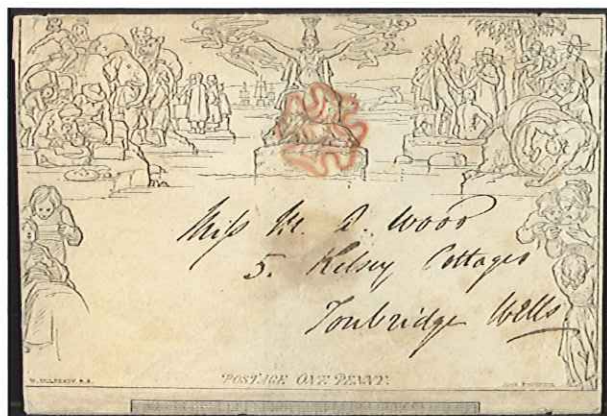 Miss M. A. Wood
5. Kelsey Cottages
Tonbridge Wells
W. MULREADY. R.A.
POSTAGE ONE PENNY.
JOHN THOMPSON